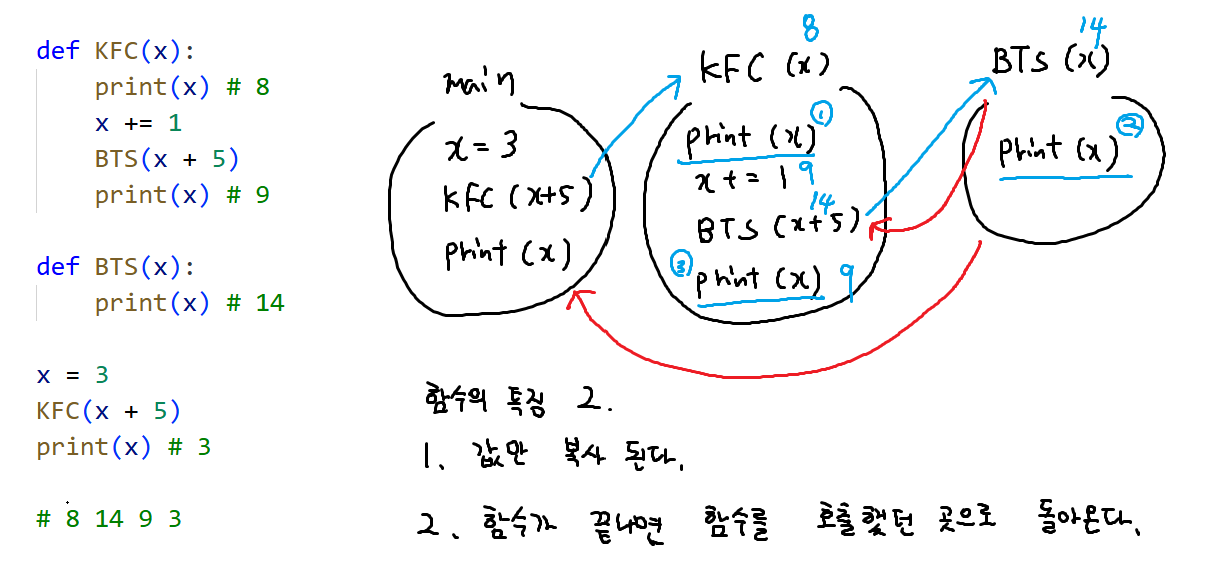 def KFC(x):
    print(x) # 8
    x += 1
    BTS(x + 5)
    print(x) # 9
def BTS(x):
    print(x) # 14
x = 3
KFC(x + 5)
print(x) # 3
# 8 14 9 3
main
x = 3
KFC (x+5)
print (x)
8
KFC (x)
print (x) ①
x += 1 9
14
BTS (x+5)
③ print (x) 9
14
BTS (x)
print (x) ②
함수의 특징 2.
1. 값만 복사 된다.
2. 함수가 끝나면 함수를 호출했던 곳으로 돌아온다.